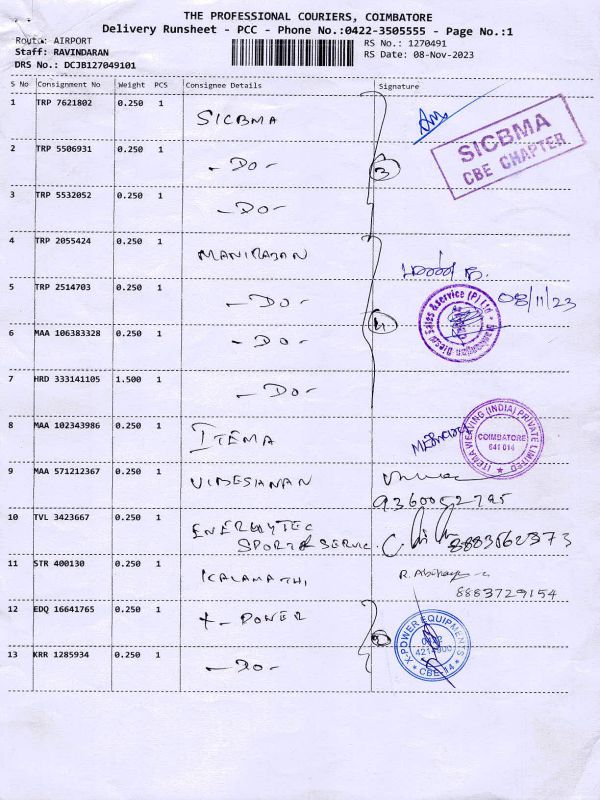 THE PROFESSIONAL COURIERS, COIMBATORE
Delivery Runsheet - PCC - Phone No.:0422-3505555 - Page No.:1
Route: AIRPORT
Staff: RAVINDARAN
DRS No.: DCJB127049101
RS No.: 1270491
RS Date: 08-Nov-2023
S No Consignment No Weight PCS Consignee Details Signature
1 TRP 7621802 0.250 1 SICBMA
SICBMA
CBE CHAPTER
2 TRP 5506931 0.250 1 - DO - 3
3 TRP 5532052 0.250 1 - DO -
4 TRP 2055424 0.250 1 MANIRAJAN
5 TRP 2514703 0.250 1 - DO - 08/11/23
Diesel Sales & Service (P) Ltd
6 MAA 106383328 0.250 1 - DO - 4
7 HRD 333141105 1.500 1 - DO -
8 MAA 102343986 0.250 1 ITEMA
ITEMA WEAVING (INDIA) PRIVATE LIMITED
COIMBATORE
641 014
9 MAA 571212367 0.250 1
10 TVL 3423667 0.250 1 ENERGYTEC
SPORT & SERVIC. 8883562373
11 STR 400130 0.250 1 KALAMATHI
8883729154
12 EDQ 16641765 0.250 1 X - POWER 2
X-POWER EQUIPMENTS
0422
CBE-14
13 KRR 1285934 0.250 1 - DO -